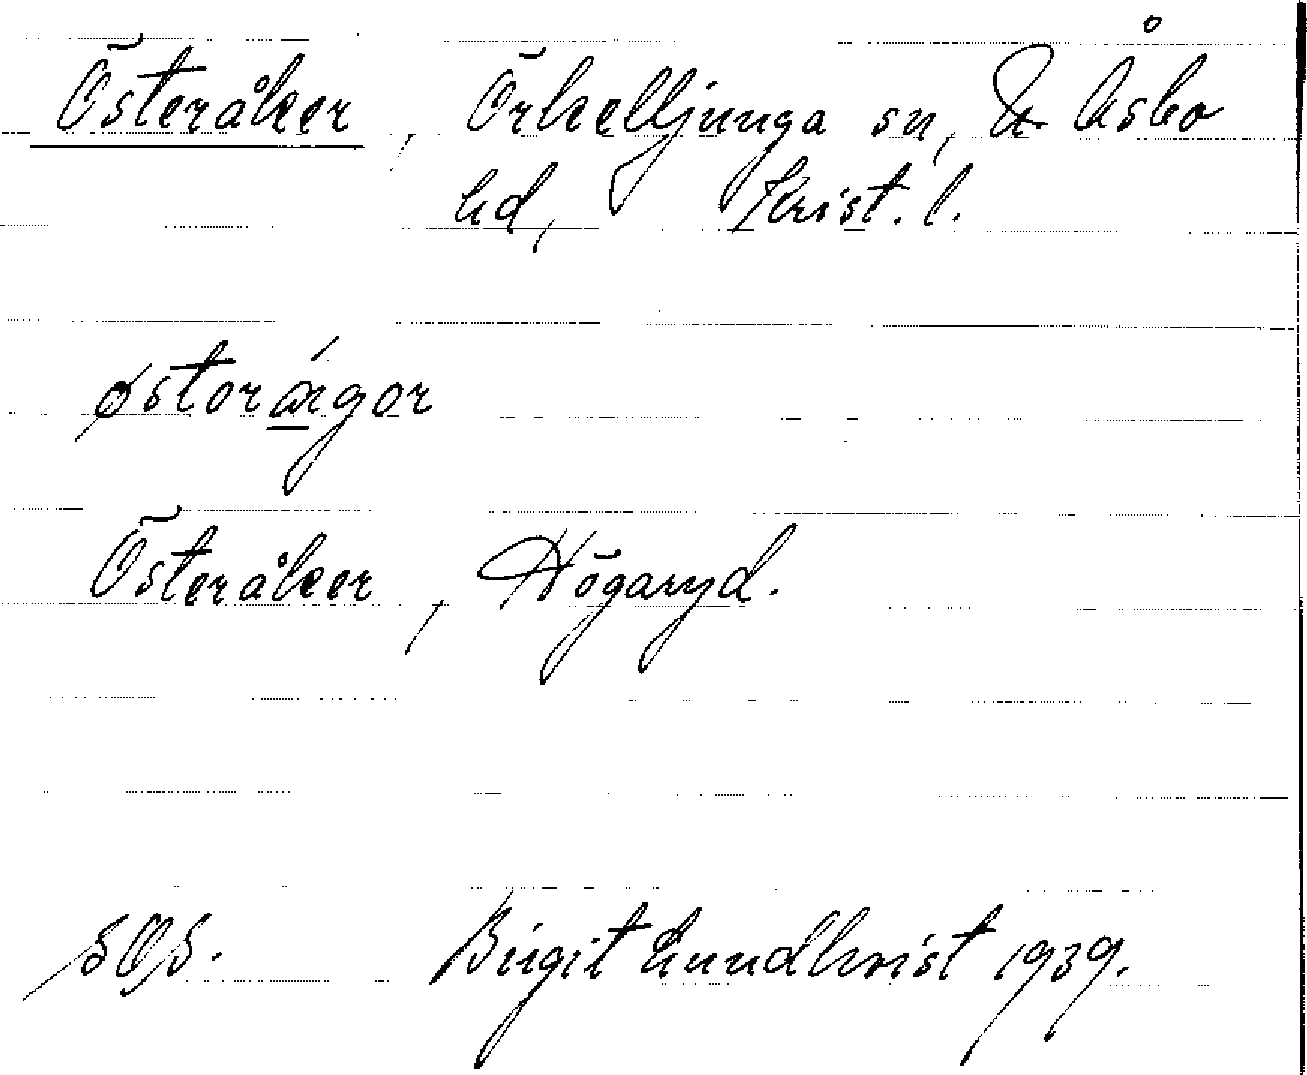 Österåker, Örkelljunga sn, N. Åsbo
hd, Krist. l.
østorágor
Österåker, Högaryd.
SOS. Birgit Lundkvist 1939.